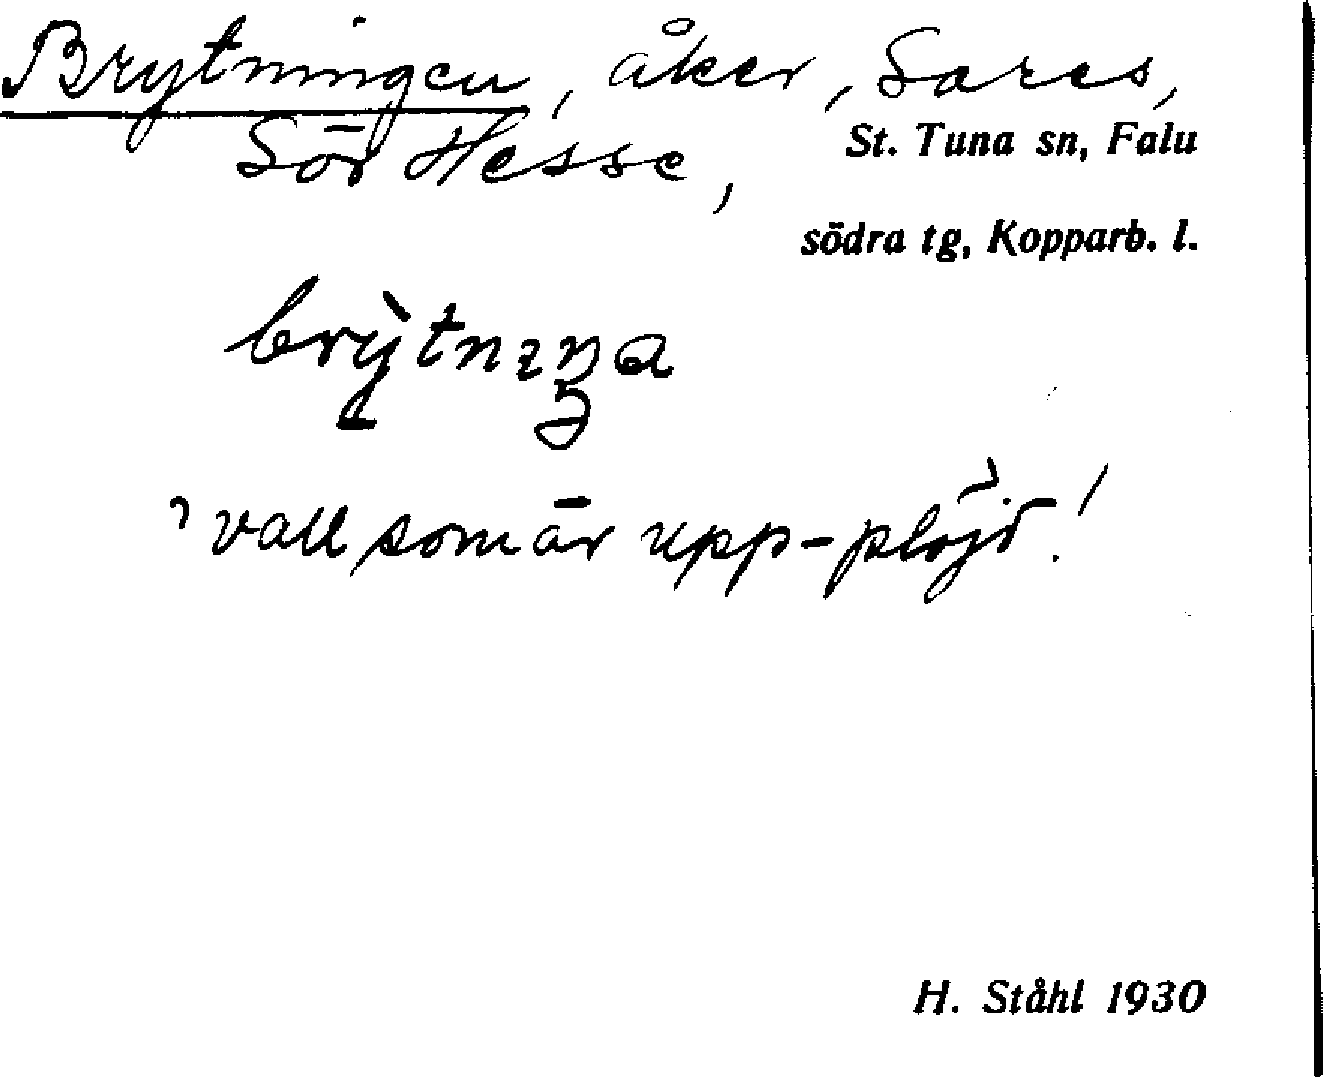 Brytningen, åker, Sares,
Sör Hesse, St. Tuna sn, Falu
södra tg, Kopparb. l.
brỳtnıŋa
'vall som är upp-plöjd.'
H. Ståhl 1930